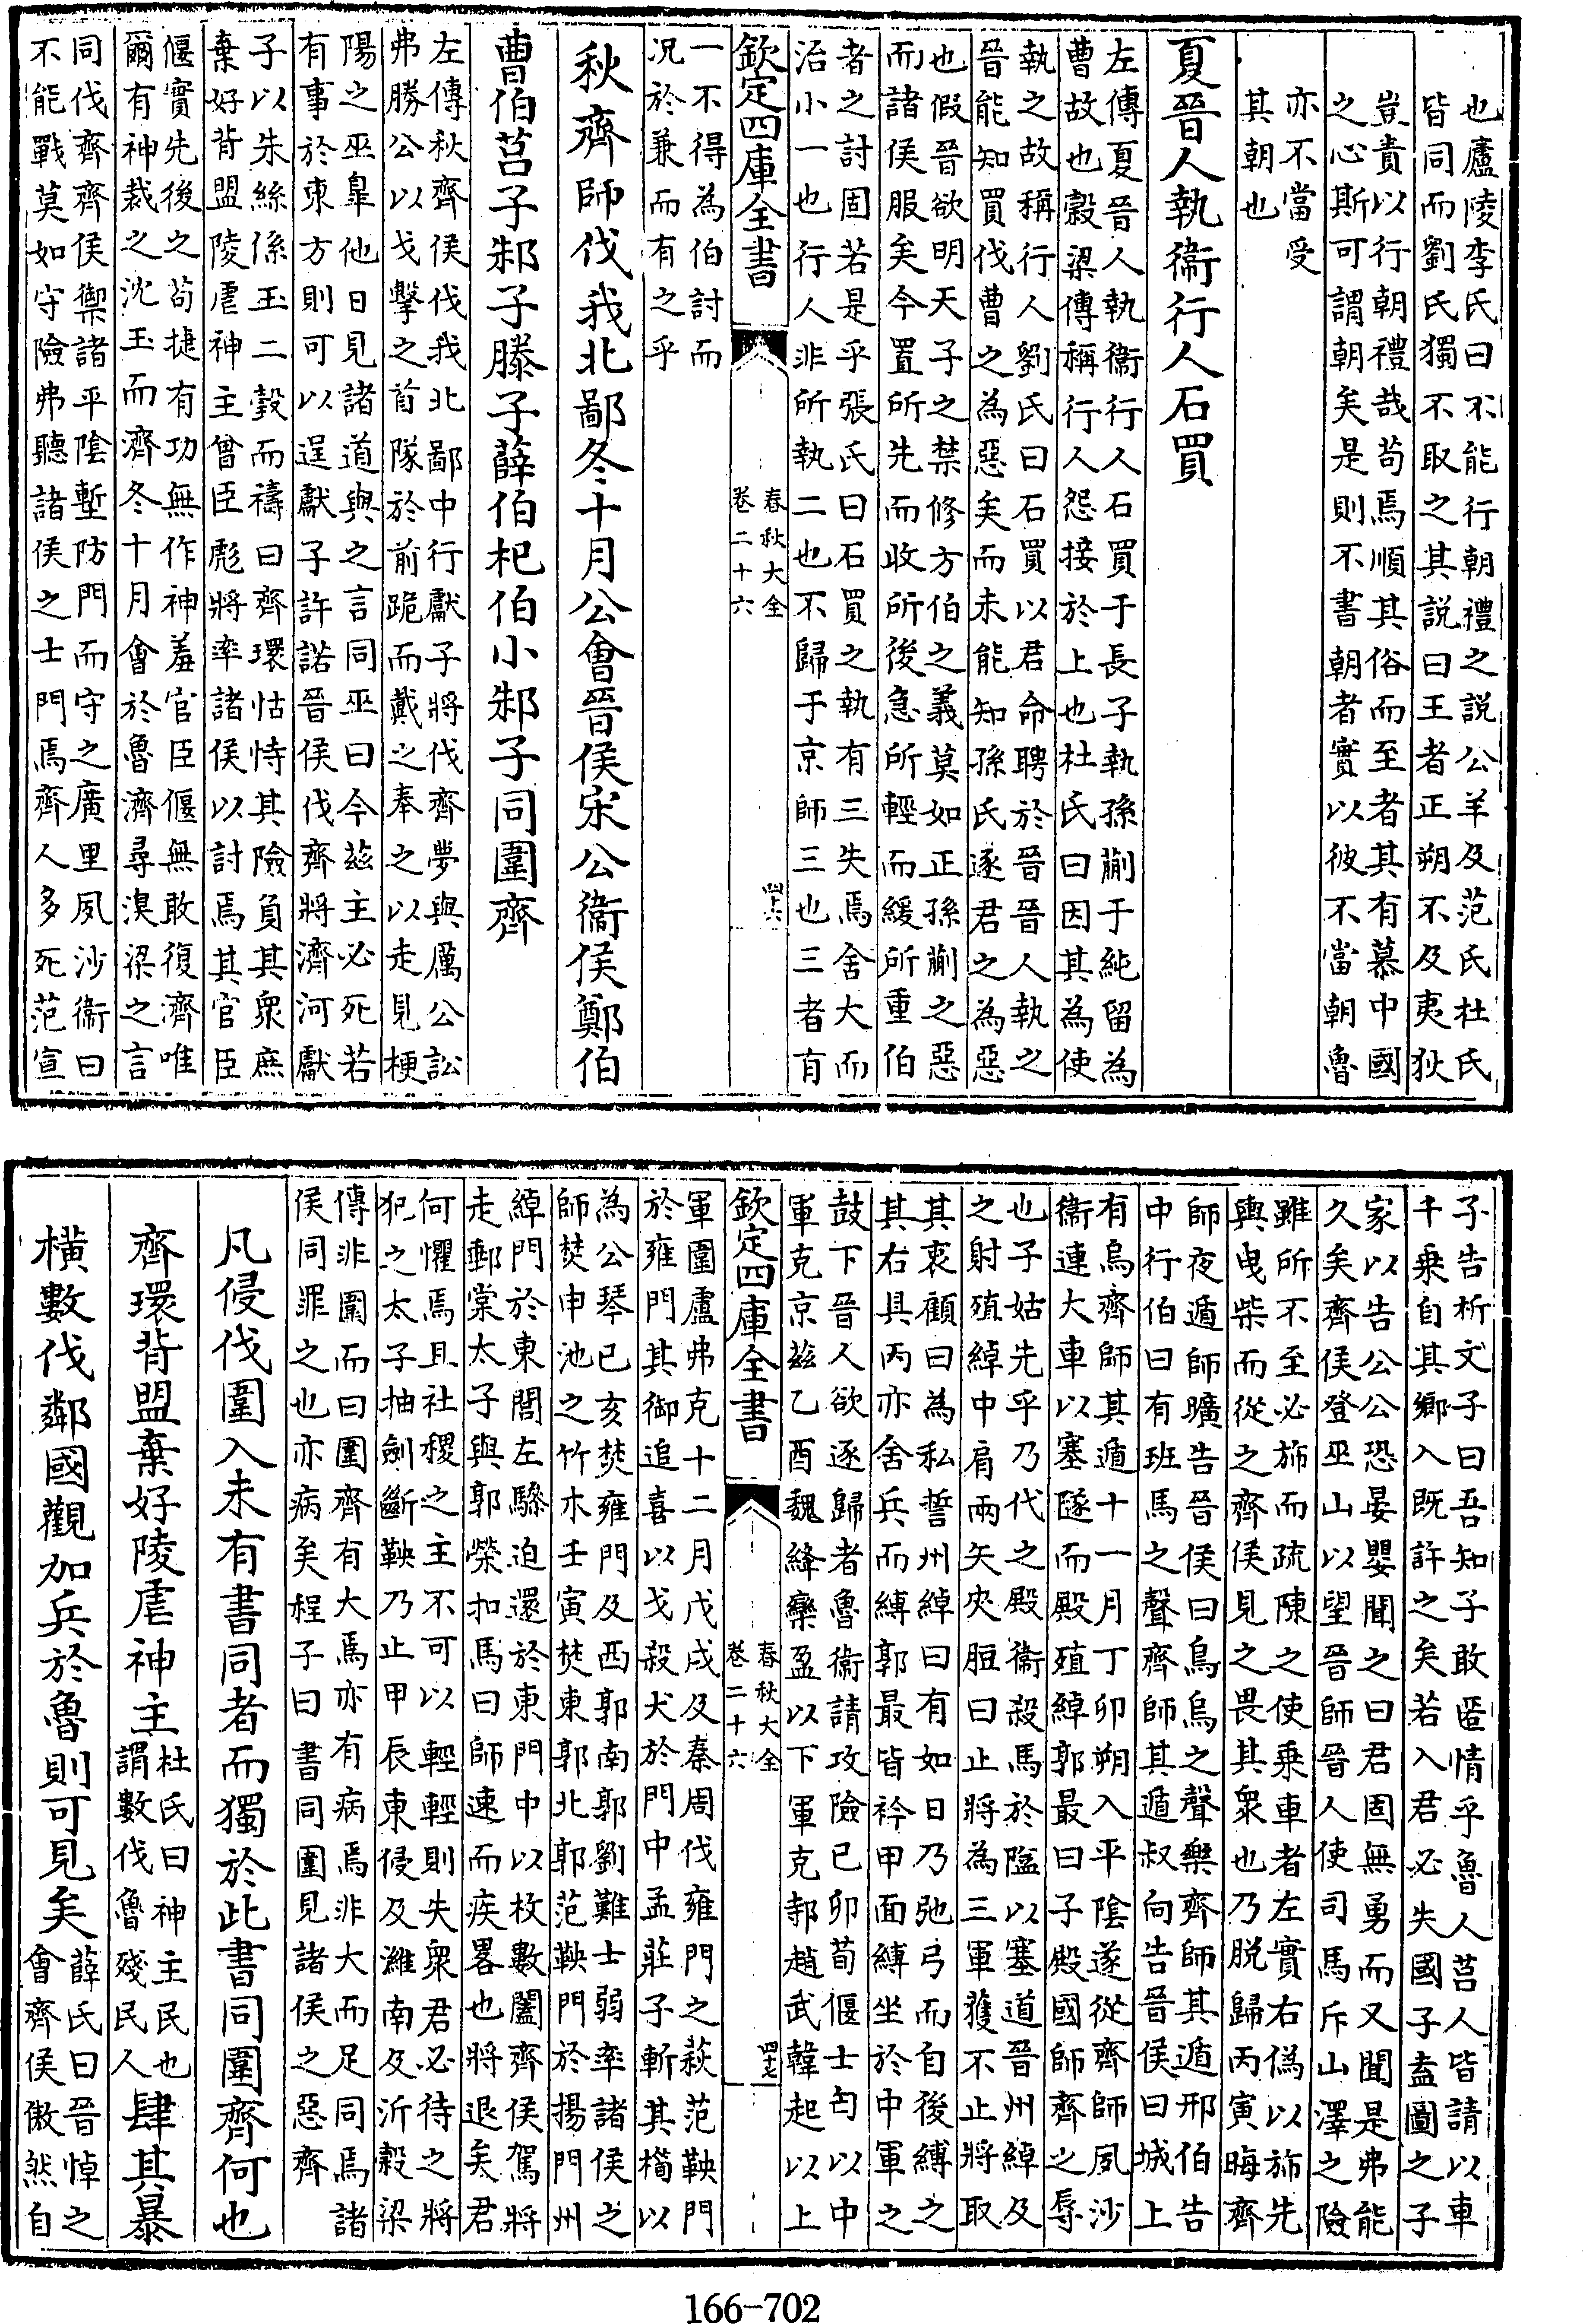 也廬陵李氏曰不能行朝禮之説公羊及范氏杜氏
皆同而劉氏獨不取之其説曰王者正朔不及夷狄
豈責以行朝禮哉苟焉順其俗而至者其有慕中國
之心斯可謂朝矣是則不書朝者實以彼不當朝魯
亦不當受
其朝也
夏晉人執衞行人石買
左傳夏晉人執衞行人石買于長子執孫蒯于純留為
曹故也穀梁傳稱行人怨接於上也杜氏曰因其為使
執之故稱行人劉氏曰石買以君命聘於晉晉人執之
晉能知買伐曹之為惡矣而未能知孫氏逐君之為惡
也假晉欲明天子之禁修方伯之義莫如正孫蒯之惡
而諸侯服矣今置所先而收所後急所輕而緩所重伯
者之討固若是乎張氏曰石買之執有三失焉舍大而
治小一也行人非所執二也不歸于京師三也三者有
欽定四庫全書
春秋大全
卷二十六
四十六
一不得為伯討而
况於兼而有之乎
秋齊師伐我北鄙冬十月公會晉侯宋公衞侯鄭伯
曹伯莒子邾子滕子薛伯杞伯小邾子同圍齊
左傳秋齊侯伐我北鄙中行獻子將伐齊夢與厲公訟
弗勝公以戈擊之首隊於前跪而戴之奉之以走見梗
陽之巫臯他日見諸道與之言同巫曰今兹主必死若
有事於東方則可以逞獻子許諾晉侯伐齊將濟河獻
子以朱絲係玉二瑴而禱曰齊環怙恃其險負其衆庶
棄好背盟陵虐神主曾臣彪將率諸侯以討焉其官臣
偃實先後之苟捷有功無作神羞官臣偃無敢復濟唯
爾有神裁之沈玉而濟冬十月會於魯濟尋溴梁之言
同伐齊齊侯禦諸平陰塹防門而守之廣里夙沙衞曰
不能戰莫如守險弗聽諸侯之士門焉齊人多死范宣
子告析文子曰吾知子敢匿情乎魯人莒人皆請以車
千乗自其鄉入既許之矣若入君必失國子盍圖之子
家以告公公恐晏嬰聞之曰君固無勇而又聞是弗能
久矣齊侯登巫山以望晉師晉人使司馬斥山澤之險
雖所不至必斾而疏陳之使乗車者左實右偽以斾先
輿曳柴而從之齊侯見之畏其衆也乃脱歸丙寅晦齊
師夜遁師曠告晉侯曰鳥烏之聲樂齊師其遁邢伯告
中行伯曰有班馬之聲齊師其遁叔向告晉侯曰城上
有烏齊師其遁十一月丁卯朔入平陰遂從齊師夙沙
衞連大車以塞隧而殿殖綽郭最曰子殿國師齊之辱
也子姑先乎乃代之殿衞殺馬於隘以塞道晉州綽及
之射殖綽中肩兩矢夾脰曰止將為三軍獲不止將取
其衷顧曰為私誓州綽曰有如日乃弛弓而自後縛之
其右具丙亦舍兵而縛郭最皆衿甲面縛坐於中軍之
鼓下晉人欲逐歸者魯衞請攻險已卯荀偃士匄以中
軍克京兹乙酉魏絳欒盈以下軍克邿趙武韓起以上
欽定四庫全書
春秋大全
卷二十六
四十七
軍圍盧弗克十二月戊戌及秦周伐雍門之萩范鞅門
於雍門其御追喜以戈殺犬於門中孟莊子斬其橁以
為公琴已亥焚雍門及西郭南郭劉難士弱率諸侯之
師焚申池之竹木壬寅焚東郭北郭范鞅門於揚門州
綽門於東閭左驂迫還於東門中以枚數闔齊侯駕將
走郵棠太子與郭榮扣馬曰師速而疾畧也將退矣君
何懼焉且社稷之主不可以輕輕則失衆君必待之將
犯之太子抽劍斷鞅乃止甲辰東侵及濰南及沂穀梁
傳非圍而曰圍齊有大焉亦有病焉非大而足同焉諸
侯同罪之也亦病矣程子曰書同圍見諸侯之惡齊
凡侵伐圍入未有書同者而獨於此書同圍齊何也
齊環背盟棄好陵虐神主杜氏曰神主民也謂數伐魯殘民人肆其暴
橫數伐鄰國觀加兵於魯則可見矣薛氏曰晉悼之會齊侯傲然自
166-702